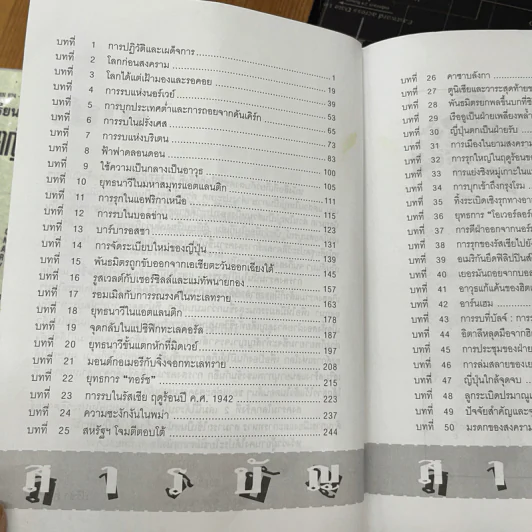 บทที่ 1 การปฏิวัติและเผด็จการ 1
บทที่ 2 โลกก่อนสงคราม 19
บทที่ 3 โลกได้แต่เฝ้ามองและรอคอย 39
บทที่ 4 การรบแห่งนอร์เวย์ 45
บทที่ 5 การบุกประเทศต่ำและการถอยจากดันเคิร์ก 53
บทที่ 6 การรบในฝรั่งเศส 65
บทที่ 7 การรบแห่งบริเตน 73
บทที่ 8 ฟ้าฟาดลอนดอน 83
บทที่ 9 ใช้ความเป็นกลางเป็นอาวุธ 100
บทที่ 10 ยุทธนาวีในมหาสมุทรแอตแลนติก 105
บทที่ 11 การรุกในแอฟริกาเหนือ 111
บทที่ 12 การรบในบอลข่าน 115
บทที่ 13 บาร์บารอสซา 123
บทที่ 14 การจัดระเบียบใหม่ของญี่ปุ่น 131
บทที่ 15 พันธมิตรถูกขับออกจากเอเชียตะวันออกเฉียงใต้ 139
บทที่ 16 รูสเวลต์กับเชอร์ชิลล์และแม่ทัพนายกอง 145
บทที่ 17 รอมเมิลกับการรณรงค์ในทะเลทราย 163
บทที่ 18 ยุทธนาวีในแอตแลนติก 178
บทที่ 19 จุดกลับในแปซิฟิกทะเลคอรัล 187
บทที่ 20 ยุทธนาวีขั้นแตกหักที่มิดเวย์ 197
บทที่ 21 มอนต์กอเมอรีกับจิ้งจอกทะเลทราย 208
บทที่ 22 ยุทธการ "ทอร์ช" 215
บทที่ 23 การรบในรัสเซีย ฤดูร้อนปี ค.ศ. 1942 223
บทที่ 24 ความชะงักงันในพม่า 237
บทที่ 25 สหรัฐฯ โจมตีตอบโต้ 244
สารบัญ
บทที่ 26 คาซาบลังกา
บทที่ 27 ตูนิเซียและวาระสุดท้ายข
บทที่ 28 พันธมิตรยกพลขึ้นบกที่
บทที่ 29 เรืออูเป็นฝ่ายเพลี่ยงพล้ำ
บทที่ 30 ญี่ปุ่นตกเป็นฝ่ายรับ
บทที่ 31 การเมืองในยามสงคราม
บทที่ 32 การรุกใหญ่ในฤดูร้อน
บทที่ 33 การแย่งชิงหมู่เกาะใน
บทที่ 34 การบุกเข้าถึงกรุงโรม
บทที่ 35 ทิ้งระเบิดเชิงรุกทางอา
บทที่ 36 ยุทธการ "โอเวอร์ลอร์
บทที่ 37 การตีฝ่าออกจากนอร์
บทที่ 38 การรุกของรัสเซียไปยั
บทที่ 39 อเมริกันยึดฟิลิปปินส์
บทที่ 40 เยอรมันถอยจากบอ
บทที่ 41 อาวุธแก้แค้นของฮิต
บทที่ 42 อาร์นเฮม
บทที่ 43 การรบที่บัลจ์ : การ
บทที่ 44 อิตาลีหลุดมือจากฮิ
บทที่ 45 การประชุมของฝ่าย
บทที่ 46 การล่มสลายของเย
บทที่ 47 ญี่ปุ่นใกล้จุดจบ
บทที่ 48 ลูกระเบิดปรมาณู
บทที่ 49 ปัจจัยสำคัญและจุ
บทที่ 50 มรดกของสงคราม
สา